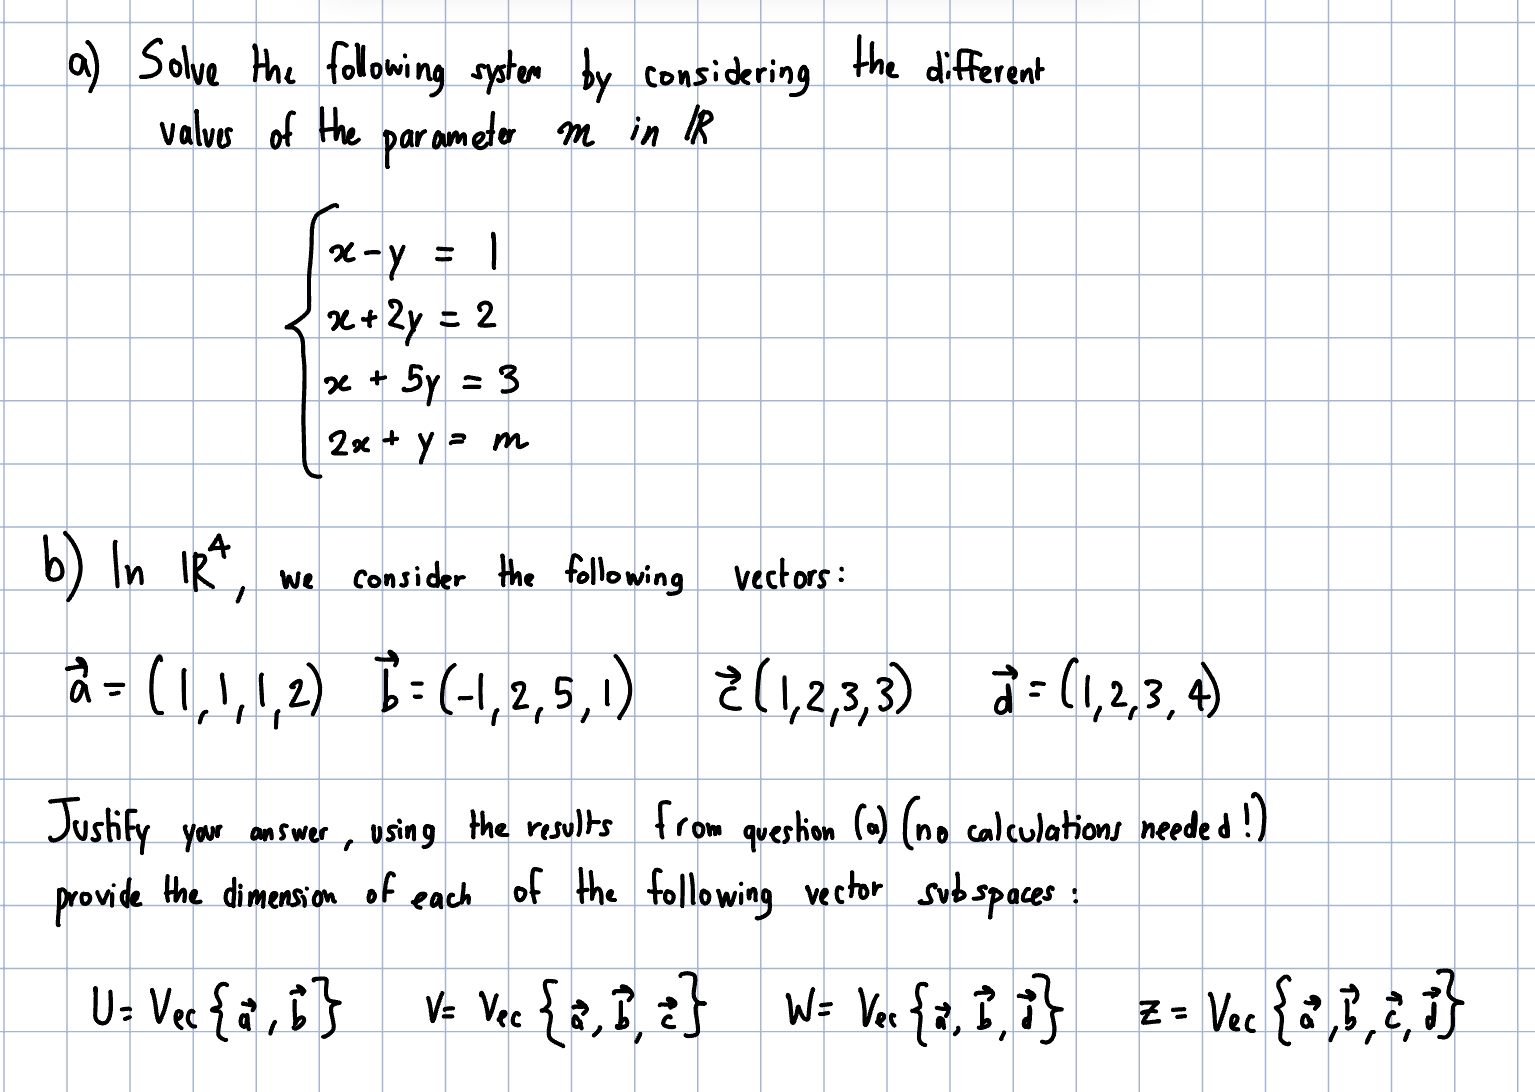 a) Solve the following system by considering the different
values of the parameter m in ℝ
x - y = 1
x + 2y = 2
x + 5y = 3
2x + y = m
b) In ℝ⁴, we consider the following vectors:
a⃗ = (1,1,1,2) b⃗ = (-1,2,5,1) c⃗ (1,2,3,3) d⃗ = (1,2,3,4)
Justify your answer, using the results from question (a) (no calculations needed!)
provide the dimension of each of the following vector subspaces:
U = Vec {a⃗, b⃗} V = Vec {a⃗, b⃗, c⃗} W = Vec {a⃗, b⃗, d⃗} Z = Vec {a⃗, b⃗, c⃗, d⃗}